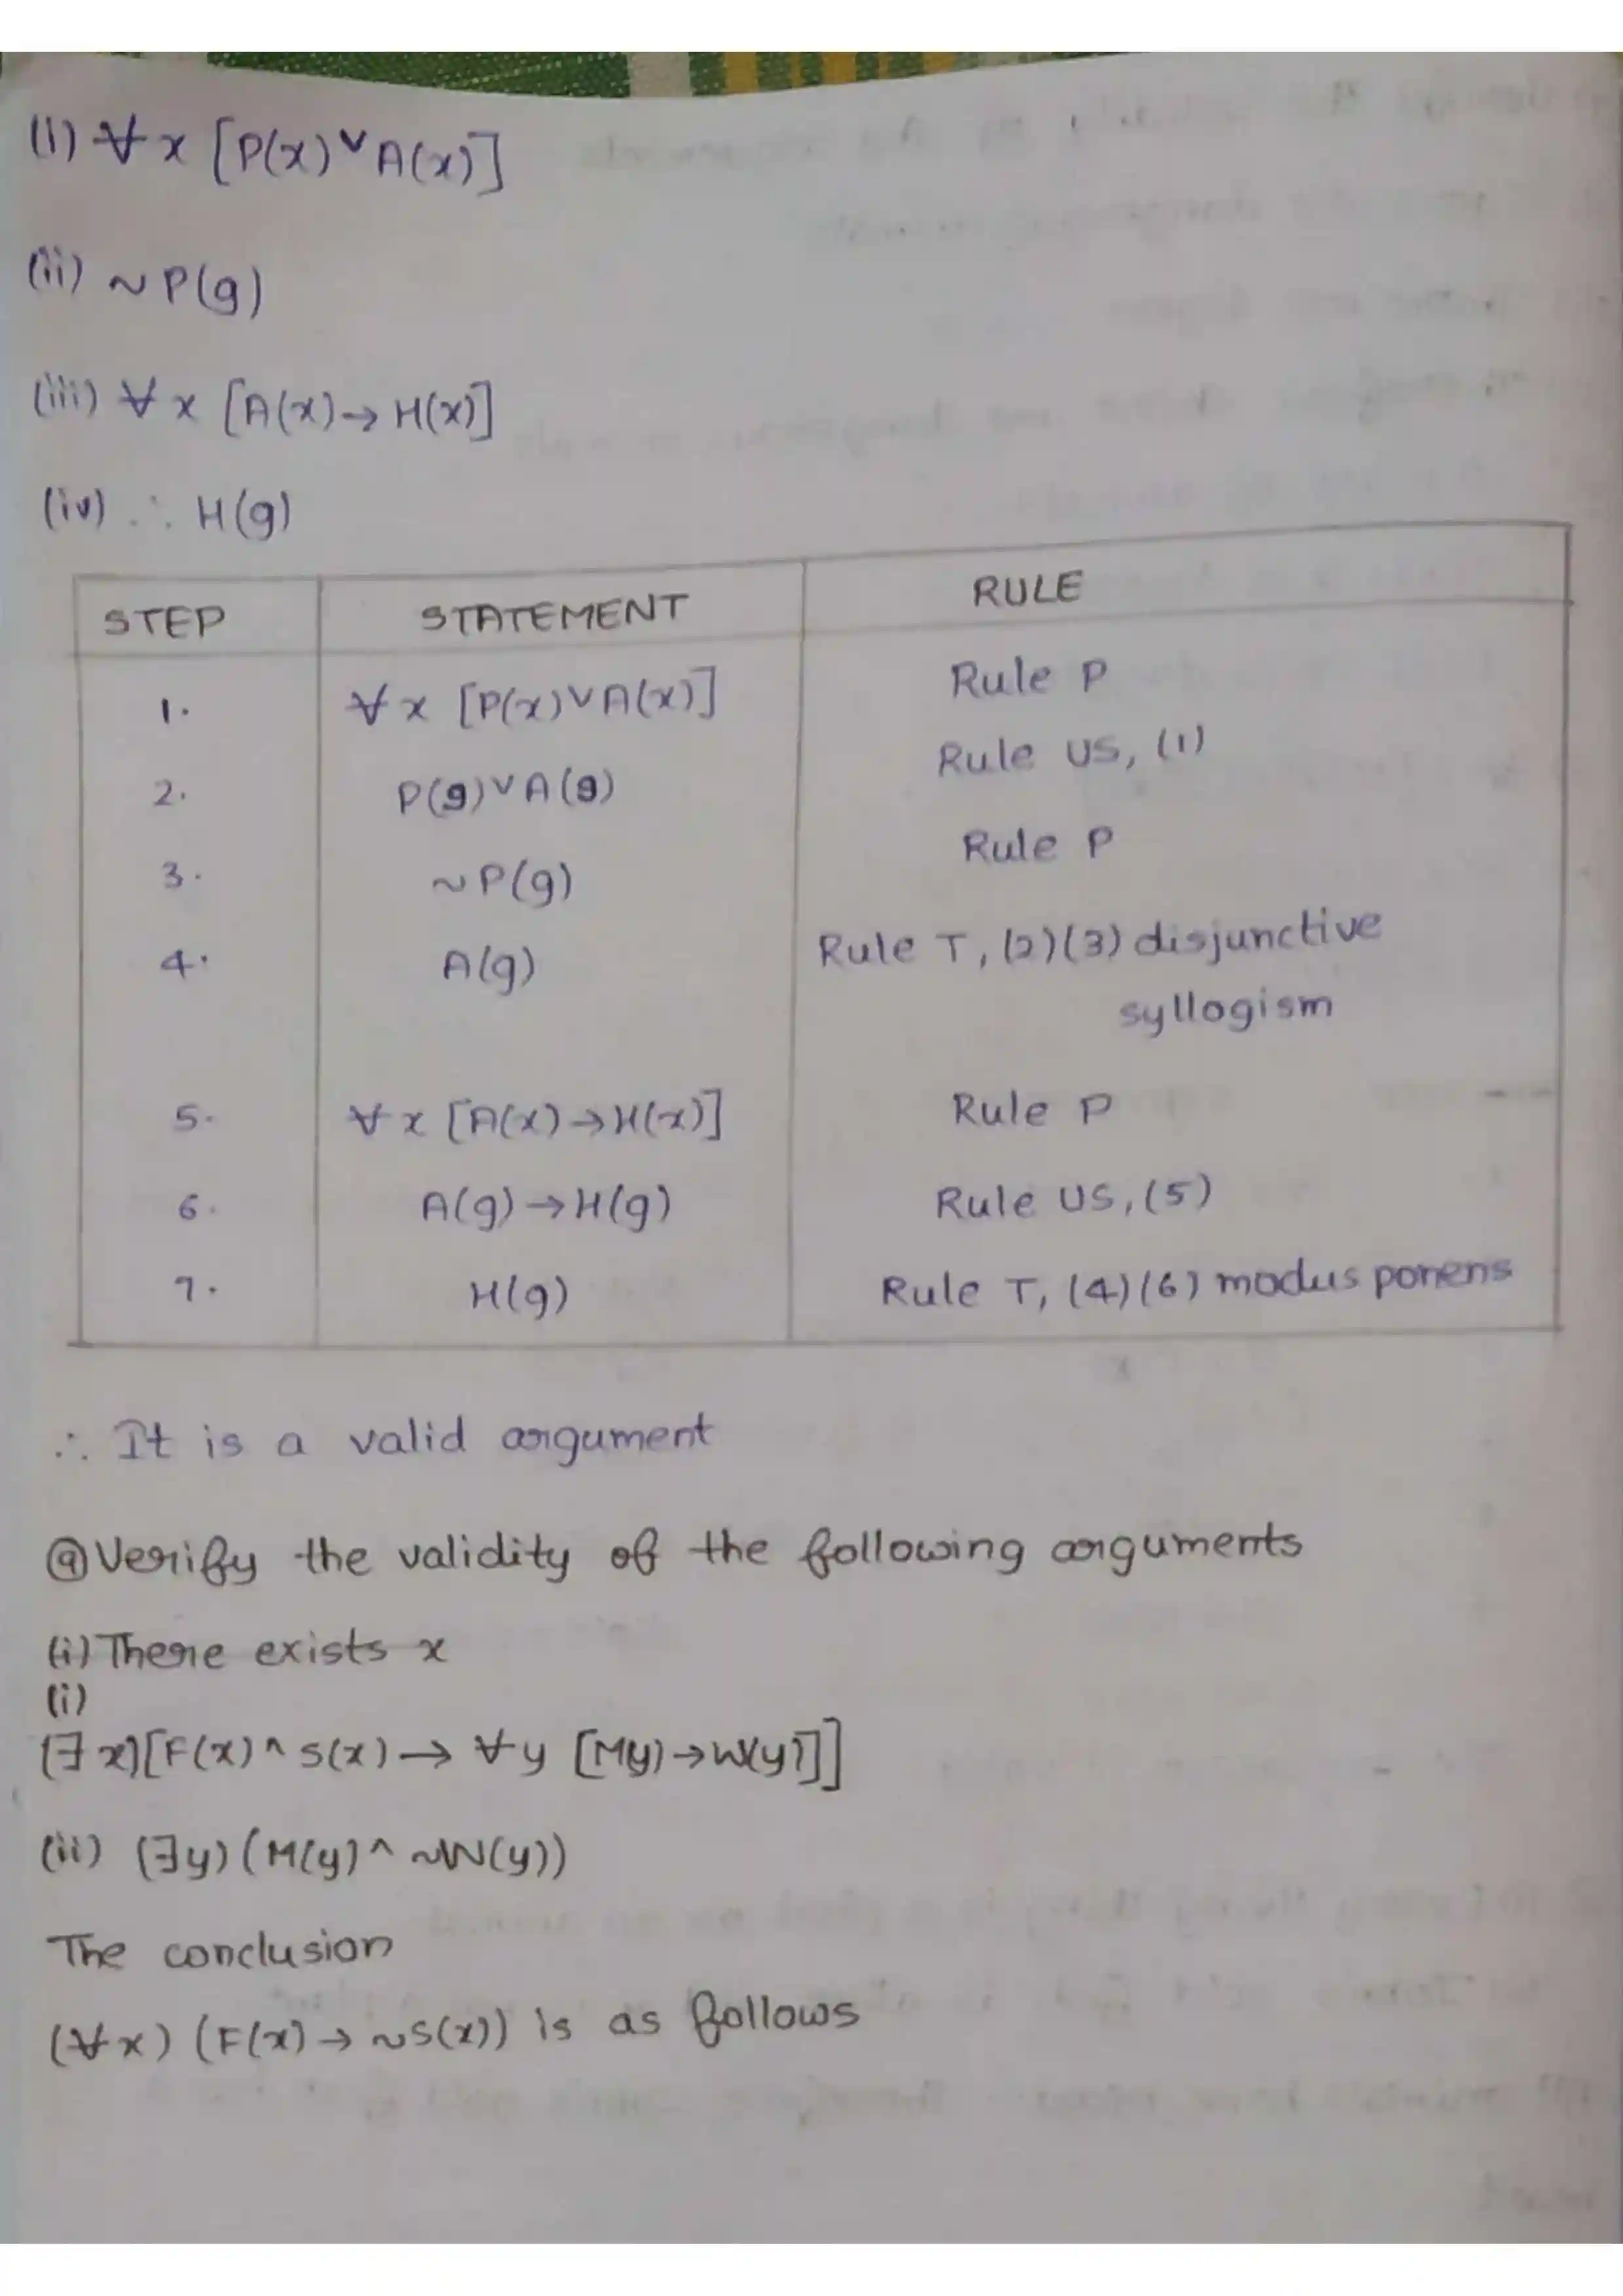 (i) ∀ x [P(x) ∨ A(x)]
(ii) ~P(g)
(iii) ∀ x [A(x) → H(x)]
(iv) ∴ H(g)
STEP STATEMENT RULE
1. ∀ x [P(x) ∨ A(x)] Rule P
2. P(g) ∨ A(g) Rule US, (1)
3. ~P(g) Rule P
4. A(g) Rule T, (2)(3) disjunctive
syllogism
5. ∀ x [A(x) → H(x)] Rule P
6. A(g) → H(g) Rule US, (5)
7. H(g) Rule T, (4)(6) modus ponens
∴ It is a valid argument
⑨ Verify the validity of the following arguments
(i) There exists x
(i)
(∃ x)[F(x) ∧ S(x) → ∀ y [My) → W(y)]]
(ii) (∃y) (M(y) ∧ ~W(y))
The conclusion
(∀ x) (F(x) → ~S(x)) is as follows